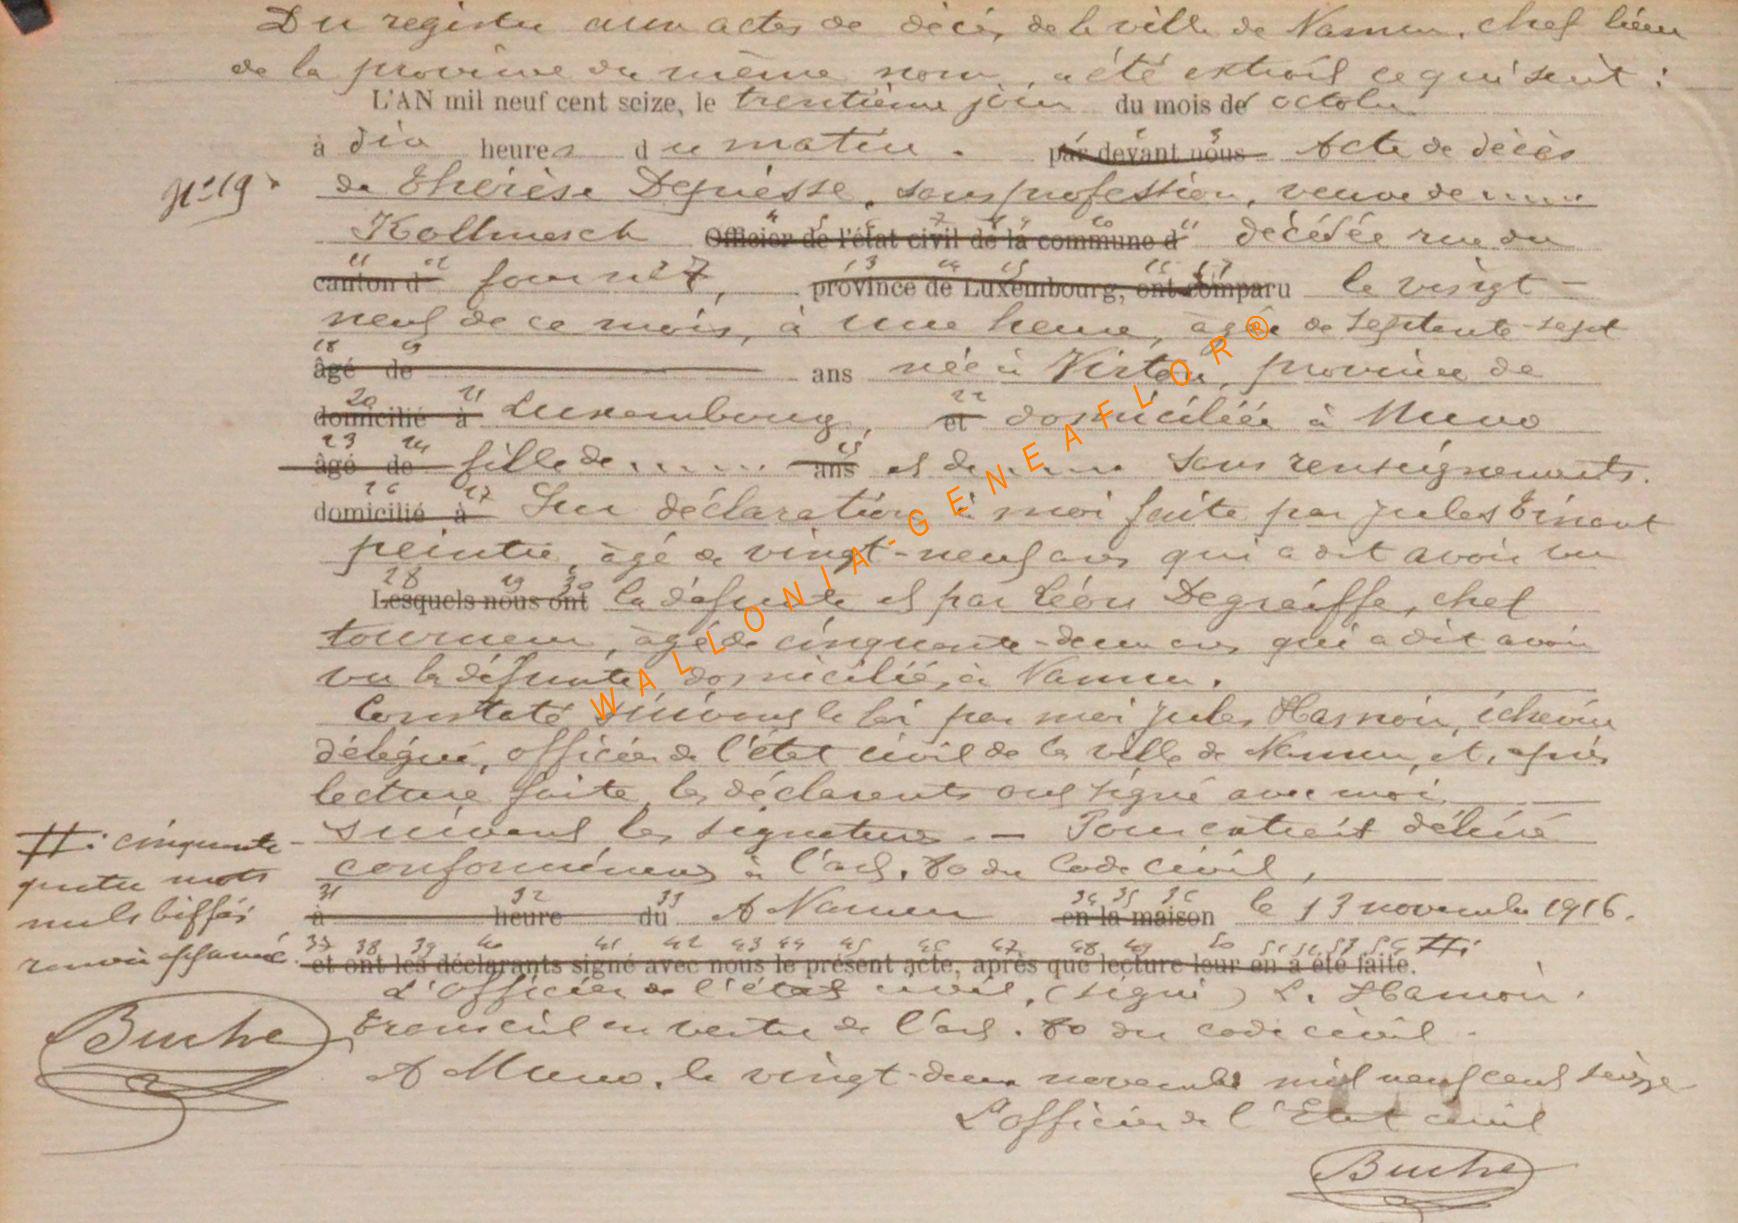 Du registre aux actes de décès de la ville de Namur, chef lieu
de la province du même nom, a été extrait ce qui suit :
L'AN mil neuf cent seize, le trentième jour du mois de octobre
à dix heures du matin. par devant nous Acte de décès
N° 19 de Thérèse Depiesse, sans profession, veuve de .....
Kollmesch Officier de l'état civil de la commune d décédée rue du
canton d four n° 27, province de Luxembourg, ont comparu le vingt-
neuf de ce mois, à une heure, agée de septante-sept
âgé de ans née à Virton, province de
domicilié à Luxembourg, et domiciliée à Muno
âgé de fille de ...... ans et de ..... sans renseignements.
domicilié à Sur déclaration à moi faite par Jules Tinant
peintre, âgé de vingt-neuf ans qui a dit avoir vu
Lesquels nous ont la défunte et par Léon Degreiffe, chef
tourneur, âgé de cinquante-deux ans qui a dit avoir
vu la défunte, domiciliés à Namur.
Constaté suivant la loi par moi Jules Hamoir, échevin
délégué, officier de l'état civil de la ville de Namur, et, après
lecture faite, les déclarants ont signé avec moi
suivent les signatures. — Pour extrait délivré
conformément à l'art. 80 du Code civil,
à heure du A Namur en la maison le 13 novembre 1916.
et ont les déclarants signé avec nous le présent acte, après que lecture leur en a été faite. #:
#: cinquante-
quatre mots
nuls biffés
renvoi approuvé.
Buche
L'officier de l'état civil, (signé) L. Hamoir.
Transcrit en vertu de l'art. 80 du code civil.
A Muno, le vingt-deux novembre mil neuf cent seize
L'officier de l'Etat civil
Buche
WALLONIA-GENEAFLOR®